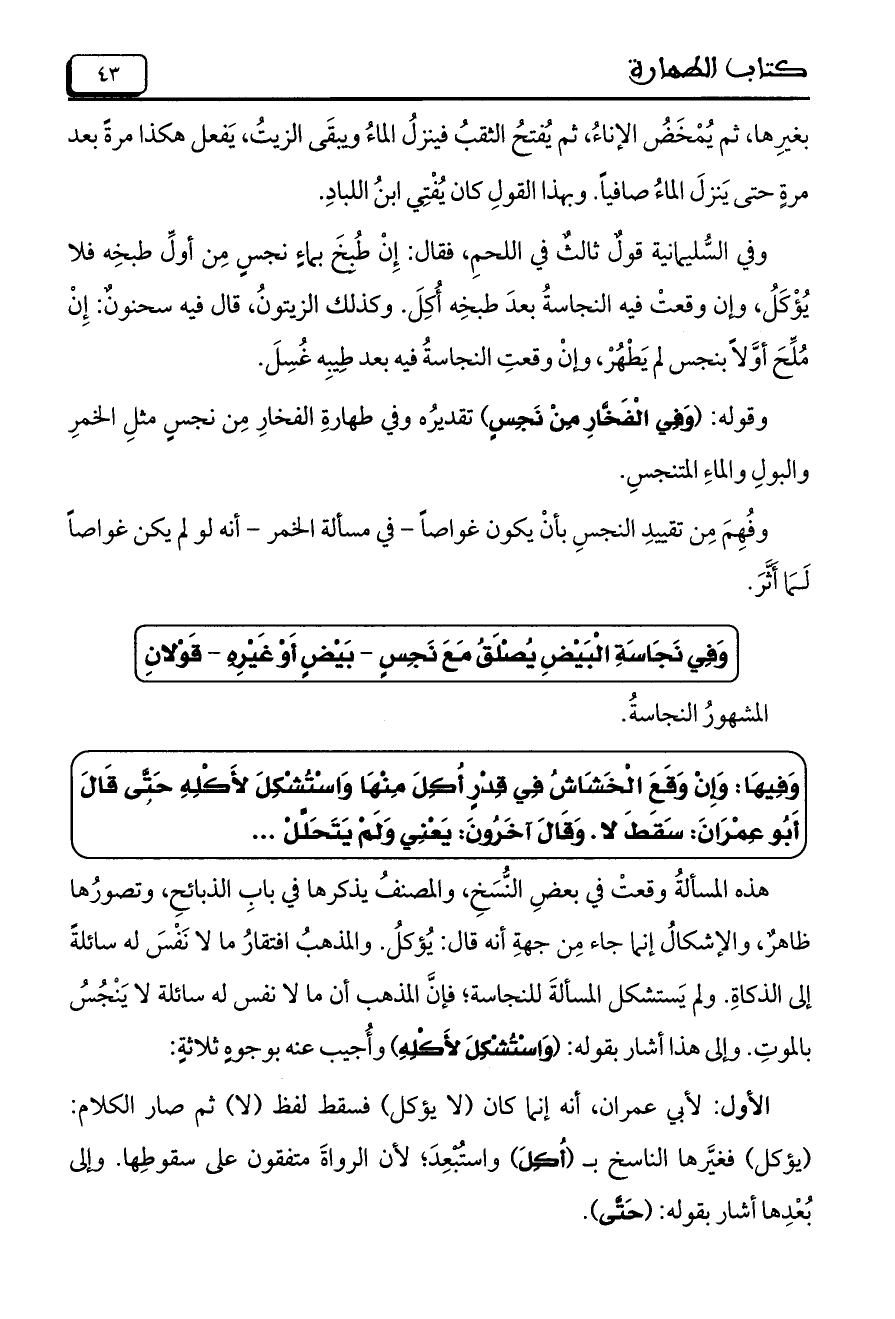 كتاب الطهارة
٤٣
بغيرِها، ثم يُمْخَضُ الإناءُ، ثم يُفتحُ الثقبُ فينزلُ الماءُ ويبقَى الزيتُ، يَفعل هكذا مرةً بعد
مرةٍ حتى يَنزلَ الماءُ صافياً. وبهذا القولِ كان يُفْتِي ابنُ اللبادِ.
وفي السُّليمانية قولٌ ثالثٌ في اللحمِ، فقال: إِنْ طُبِخَ بماءٍ نجسٍ مِن أولِّ طبخِه فلا
يُؤْكَلُ، وإن وقعتْ فيه النجاسةُ بعدَ طبخِه أُكِلَ. وكذلك الزيتونُ، قال فيه سحنونٌ: إِنْ
مُلِّحَ أوَّلاً بنجس لم يَطْهُرْ، وإنْ وقعتِ النجاسةُ فيه بعد طِيبِه غُسِلَ.
وقوله: (وَفِي الْفَخَّارِ مِنْ نَجِسٍ) تقديرُه وفي طهارةِ الفخارِ مِن نجسٍ مثلِ الخمرِ
والبولِ والماءِ المتنجسِ.
وفُهِمَ مِن تقييدِ النجسِ بأنْ يكون غواصاً – في مسألة الخمر – أنه لو لم يكن غواصاً
لَمَا أَثَّرَ.
وَفِي نَجَاسَةِ الْبَيْضِ يُصْلَقُ مَعَ نَجِسٍ – بَيْضٍ أَوْ غَيْرِهِ – قَوْلانِ
المشهورُ النجاسةُ.
وَفِيهَا: وَإِنْ وَقَعَ الْخَشَاشُ فِي قِدْرٍ أُكِلَ مِنْهَا وَاسْتُشْكِلَ لأَكْلِهِ حَتَّى قَالَ
أَبُو عِمْرَانَ: سَقَطَ لا. وَقَالَ آخَرُونَ: يَعْنِي وَلَمْ يَتَحَلَّلْ ...
هذه المسألةُ وقعتْ في بعضِ النُّسَخِ، والمصنفُ يذكرها في بابِ الذبائحِ، وتصورُها
ظاهرٌ، والإشكالُ إنما جاء مِن جهةِ أنه قال: يُؤكلُ. والمذهبُ افتقارُ ما لا نَفْسَ له سائلةً
إلى الذكاةِ. ولم يَستشكل المسألةَ للنجاسة؛ فإنَّ المذهب أن ما لا نفس له سائلة لا يَنْجُسُ
بالموتِ. وإلى هذا أشار بقوله: (وَاسْتُشْكِلَ لأَكْلِهِ) وأُجيب عنه بوجوهٍ ثلاثةٍ:
الأول: لأبي عمران، أنه إنما كان (لا يؤكل) فسقط لفظ (لا) ثم صار الكلام:
(يؤكل) فغيَّرها الناسخ بـ (أُكِلَ) واستُبْعِدَ؛ لأن الرواةَ متفقون على سقوطِها. وإلى
بُعْدِها أشار بقوله: (حَتَّى).